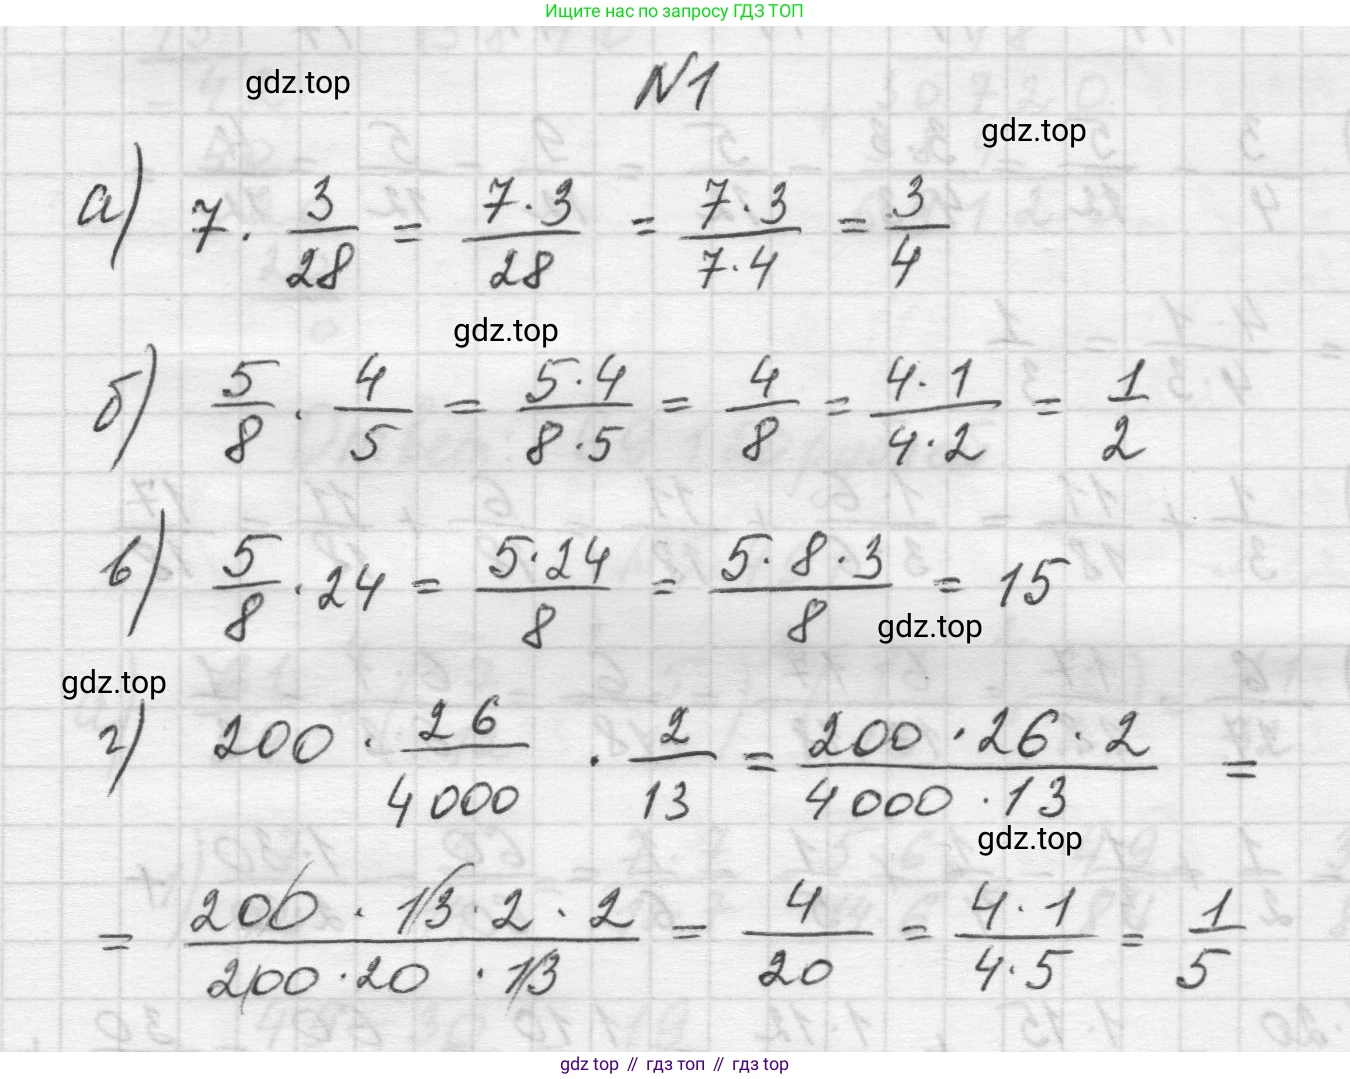 Ищите нас по запросу ГДЗ ТОП
gdz.top
N1
gdz.top
а) 7 · 3/28 = 7·3/28 = 7·3/7·4 = 3/4
gdz.top
б) 5/8 · 4/5 = 5·4/8·5 = 4/8 = 4·1/4·2 = 1/2
в) 5/8 · 24 = 5·24/8 = 5·8·3/8 = 15
gdz.top
gdz.top
г) 200 · 26/4000 · 2/13 = 200·26·2/4000·13 =
gdz.top
= 200·13·2·2/200·20·13 = 4/20 = 4·1/4·5 = 1/5
gdz top // гдз топ // gdz top